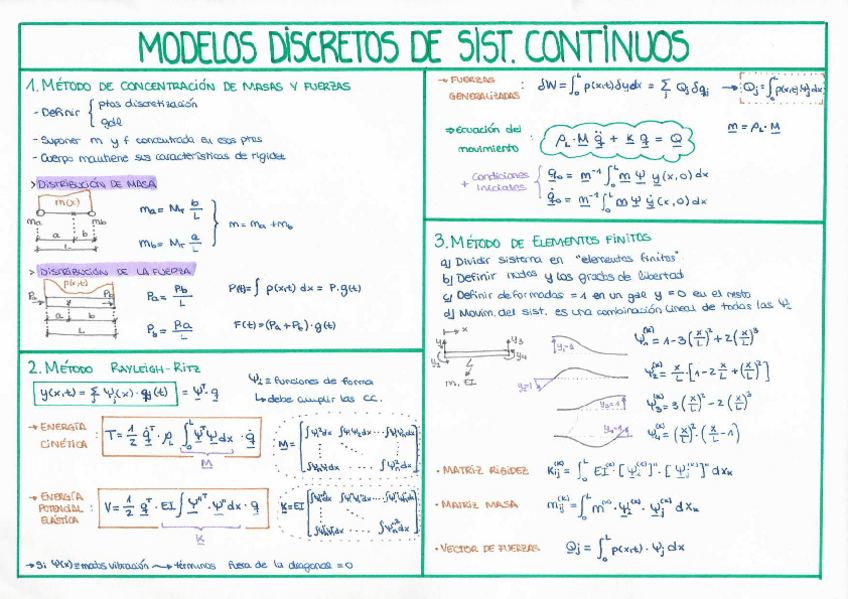 MODELOS DISCRETOS DE SIST. CONTINUOS
1. MÉTODO DE CONCENTRACIÓN DE MASAS Y FUERZAS
- Definir { ptos discretización
gdl
- Suponer m y f concentrada en esos ptos
- Cuerpo mantiene sus características de rigidez
> DISTRIBUCIÓN DE MASA
m(x)
ma mb
a b
L
ma = M_T b/L
mb = M_T a/L
} m = ma + mb
> DISTRIBUCIÓN DE LA FUERZA
p(x,t)
Pa Pb
a b
L
Pa = Pb/L
P_b = Pa/L
P(t) = ∫ p(x,t) dx = P·g(t)
F(t) = (Pa + Pb)·g(t)
2. MÉTODO RAYLEIGH-RITZ
y(x,t) = Σ_j Ψ_j(x)·q_j(t) = Ψ^T·q
Ψ_i ≡ funciones de forma
↳ debe cumplir las CC.
→ ENERGÍA CINÉTICA : T = 1/2 q̇^T · ρ_L ∫_0^L Ψ^T Ψ dx · q̇
M
M =
→ ENERGÍA POTENCIAL ELÁSTICA : V = 1/2 q^T · EI ∫ Ψ''^T · Ψ'' dx · q
K
K = EI
→ Si Ψ(x) ≡ modos vibración → términos fuera de la diagonal = 0
→ FUERZAS GENERALIZADAS : δW = ∫_0^L p(x,t) δy dx = Σ_j Q_j δq_j → Q_j = ∫_0^L p(x,t) Ψ_j dx
⇒ Ecuación del movimiento : ρ_L · M q̈ + K q = Q
m = ρ_L · M
+ Condiciones iniciales { q_0 = m^-1 ∫_0^L m Ψ y(x,0) dx
q̇_0 = m^-1 ∫_0^L m Ψ ẏ(x,0) dx
3. MÉTODO DE ELEMENTOS FINITOS
a) Dividir sistema en "elementos finitos"
b) Definir nodos y los grados de libertad
c) Definir deformadas = 1 en un gdl y = 0 en el resto
d) Movim. del sist. es una combinación lineal de todas las Ψ_i
→ x
y1 y3
y2 y4
m, EI
y1=1
y2=1
y3=1
y4=1
Ψ_1^(k) = 1 - 3 (x/L)² + 2 (x/L)³
Ψ_2^(k) = x/L · [1 - 2 x/L + (x/L)²]
Ψ_3^(k) = 3 (x/L)² - 2 (x/L)³
Ψ_4^(k) = (x/L)² · (x/L - 1)
· MATRIZ RIGIDEZ K_ij^(k) = ∫_0^L EI^(k) · [Ψ_i^(k)]'' · [Ψ_j^(k)]'' dx_k
· MATRIZ MASA m_ij^(k) = ∫_0^L m^(k) · Ψ_i^(k) · Ψ_j^(k) dx_k
· VECTOR DE FUERZAS Q_j = ∫_0^L p(x,t) · Ψ_j dx